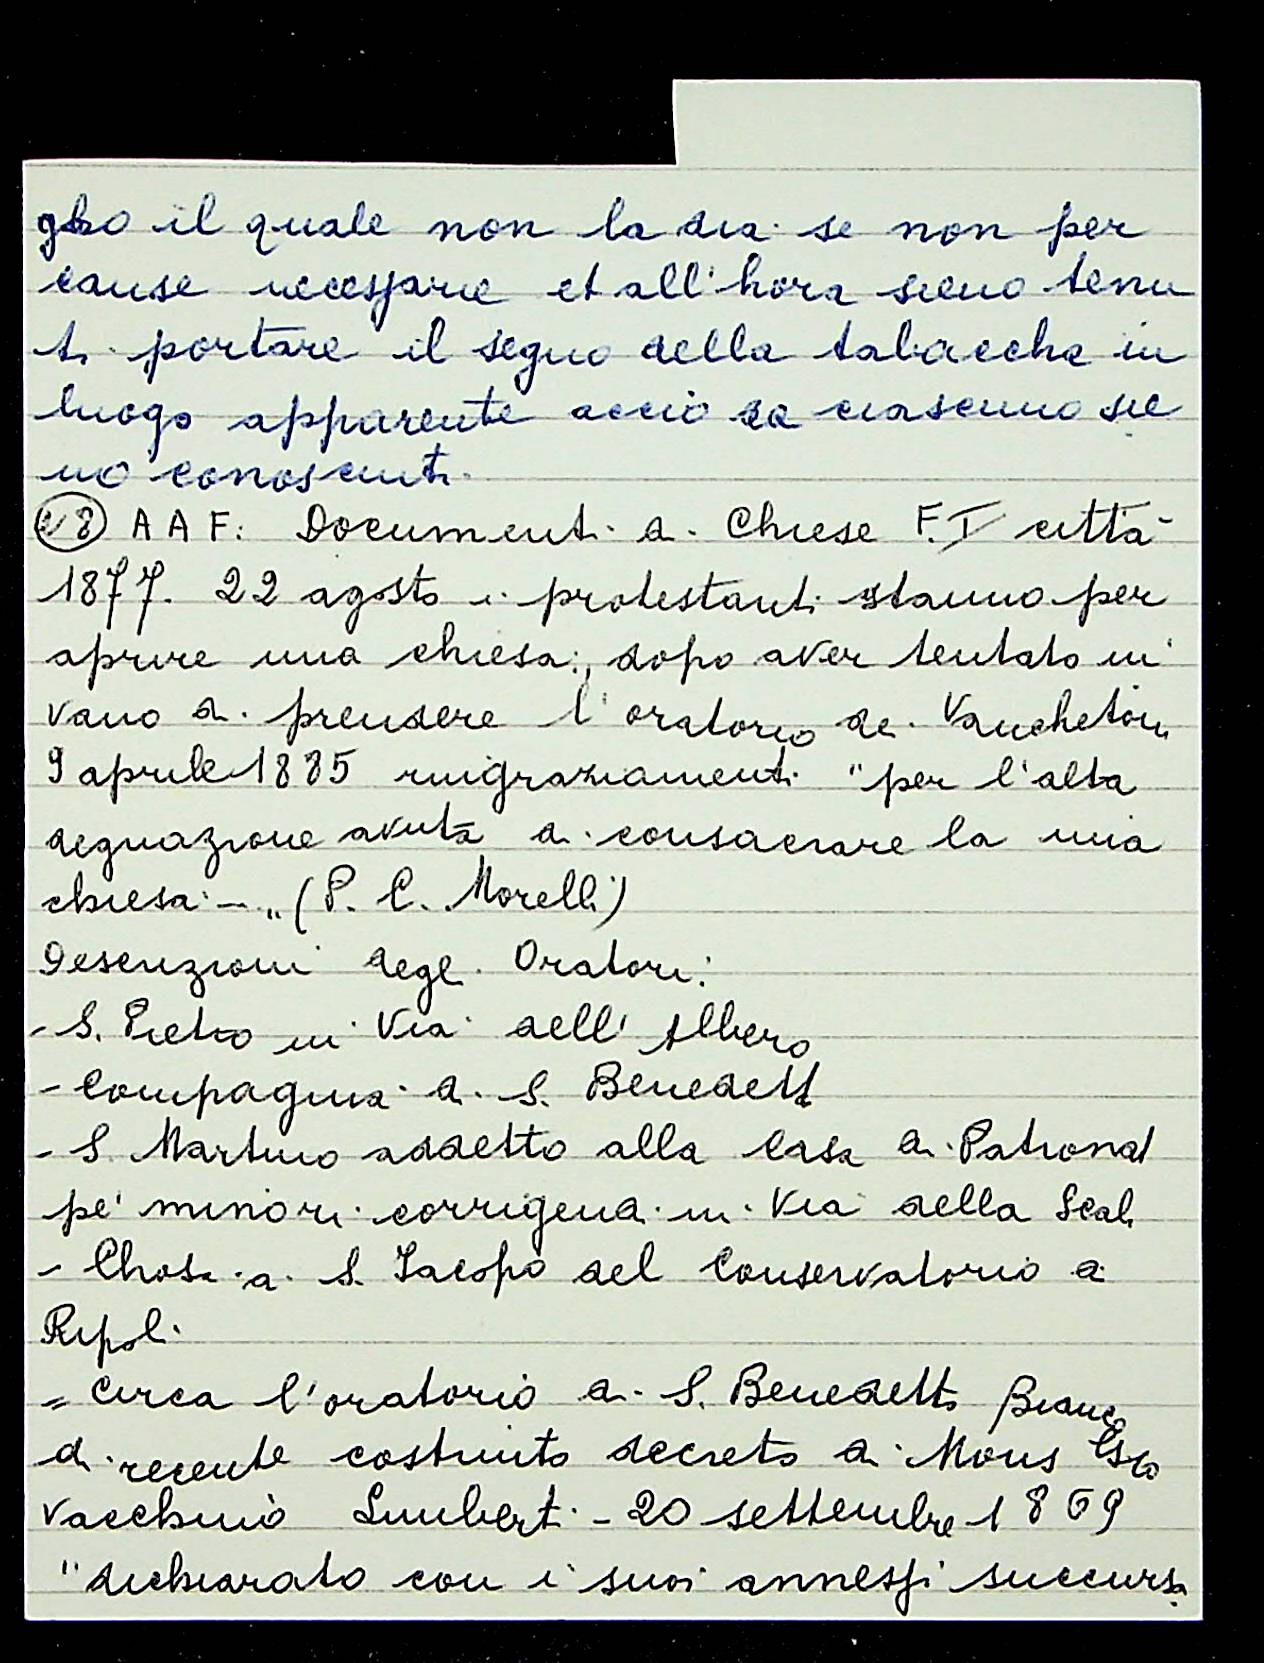 glio il quale non la dia se non per
cause necessarie et all'hora sieno tenu
ti portare il segno della tabacche in
luogo apparente acciò da ciascuno sie
no conosciuti.
28 A A F: Documenti di Chiese F. I città
1877. 22 agosto i protestanti stanno per
aprire una chiesa: dopo aver tentato in
vano di prendere l'oratorio dei Vanchetoni
9 aprile 1885 ringraziamenti "per l'alta
degnazione avuta di consacrare la mia
chiesa - " (P. C. Morelli)
Descrizioni degli Oratori:
- S. Pietro in Via dell'Albero
- Compagnia di S. Benedett
- S. Martino addetto alla Casa di Patronat
pe' minori corrigendi in Via della Scal
- Chiesa di S. Jacopo del Conservatorio di
Ripoli
= Circa l'oratorio di S. Benedetto Bianco
di recente costruito decreto di Mons
vacchino Limberti - 20 settembre 1869
"dichiarato con i suoi annessi succursa